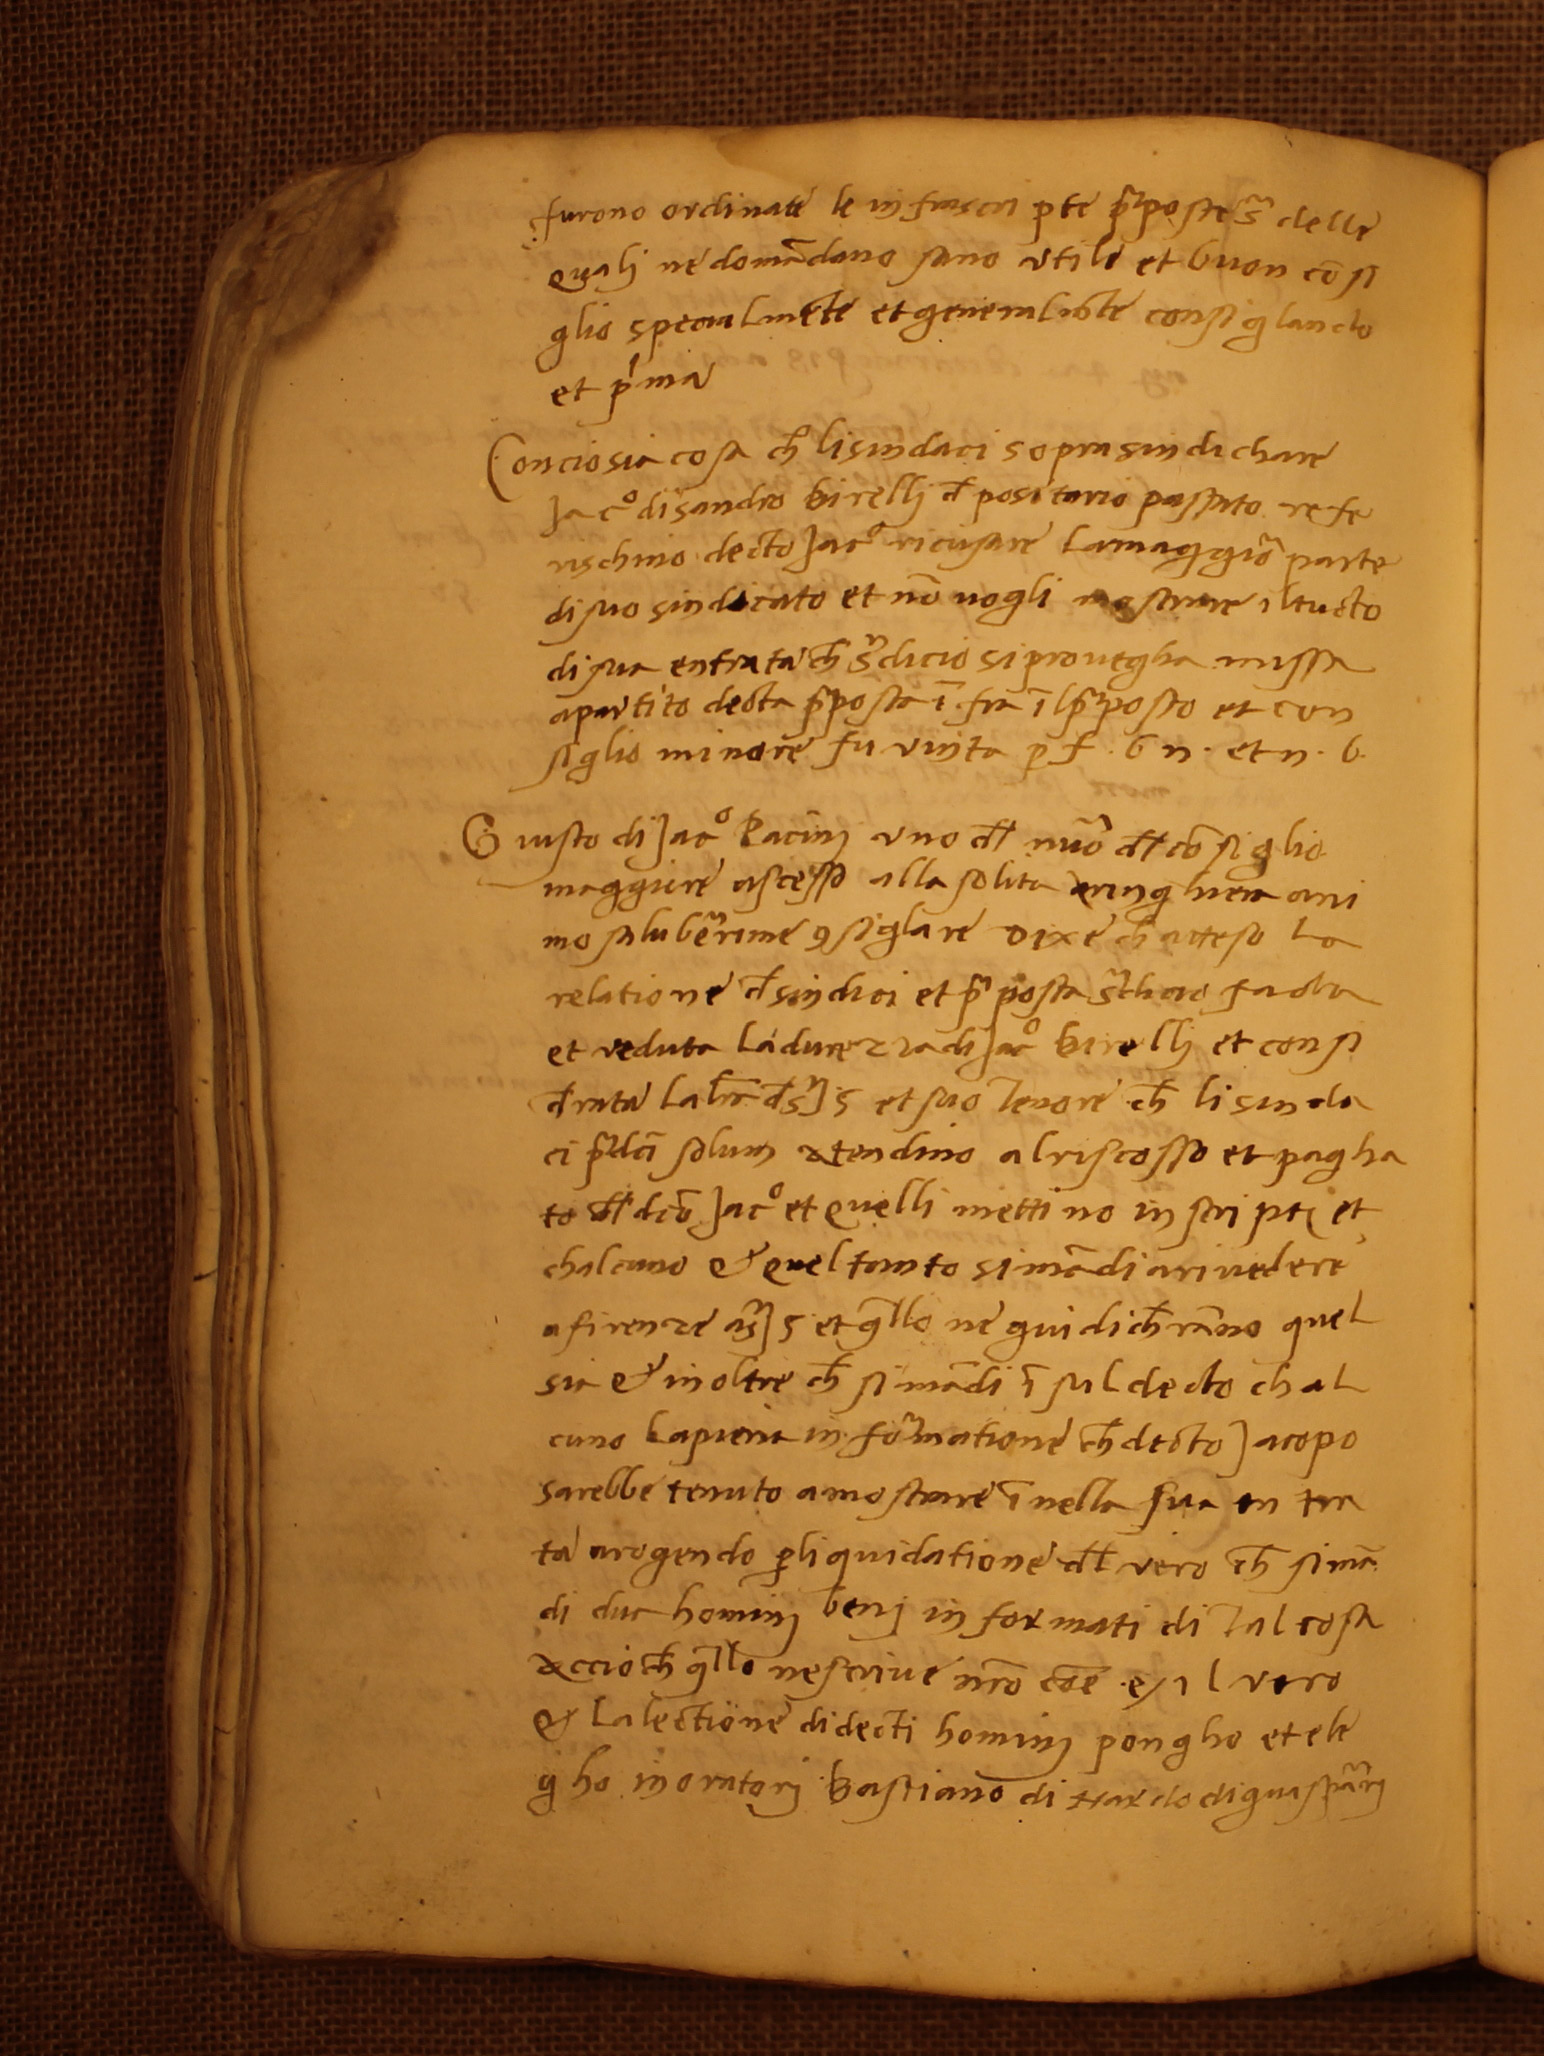 furono ordinate le infrascri pte p̃poste s̃ delle
quali ne domãdano sano utile et buon cõsi
glio specialmẽte et generalmẽte consiglando
et p'ma
Conciosia cosa ch̄ li sindaci sopra sindichare
Jac° di sandro birellj đpositario passato refe
rischino decto Jac° ricusare la maggiõ parte
di suo sindicato et nõ vogli mostrare il tucto
di sua entrata ch̄ s̃dicio si provegha missa
a partito decta p̃posta ĩ fra ĩl p̃posto et con
siglio minore fu vinta p f. 6 n. et n. 6.
Giusto di Jac° Pacinj uno đl nũo đl cõsiglio
maggiore asceso alla solita aringhiera ani
mo salubẽrime 9siglare dixe ch̄ atteso la
relatione đ sindici et p̃posta s̃dicio facta
et veduta la durezza di Jac° birellj et consi
đrata la lr̃a đ s̃ J 5 et suo tenore ch̄ li sinda
ci p̃dc̃i solum atendino al riscosso et pagha
to đl dc̃o Jac° et quelli mettino in scriptj et
chalcuno & quel tanto si mãdi a rivedere
a firenze a s̃ J 5 et q̃llo ne guidich̄rãno quel
sia & inoltre ch̄ si mãdi ĩ sul decto chal
cuno la piena informatione ch̄ decto Jacopo
sarebbe tenuto a mostrare ĩ nella sua en tra
ta arogendo p liquidatione đl vero ch̄ si mã
di due hominj benj informati di tal cosa
accio ch̄ q̃llo ne scrive nr̃o cõe e/ il vero
& la lectione di decti hominj pongho et ele
gho in oratorj bastiano di nardo di guaspãrj